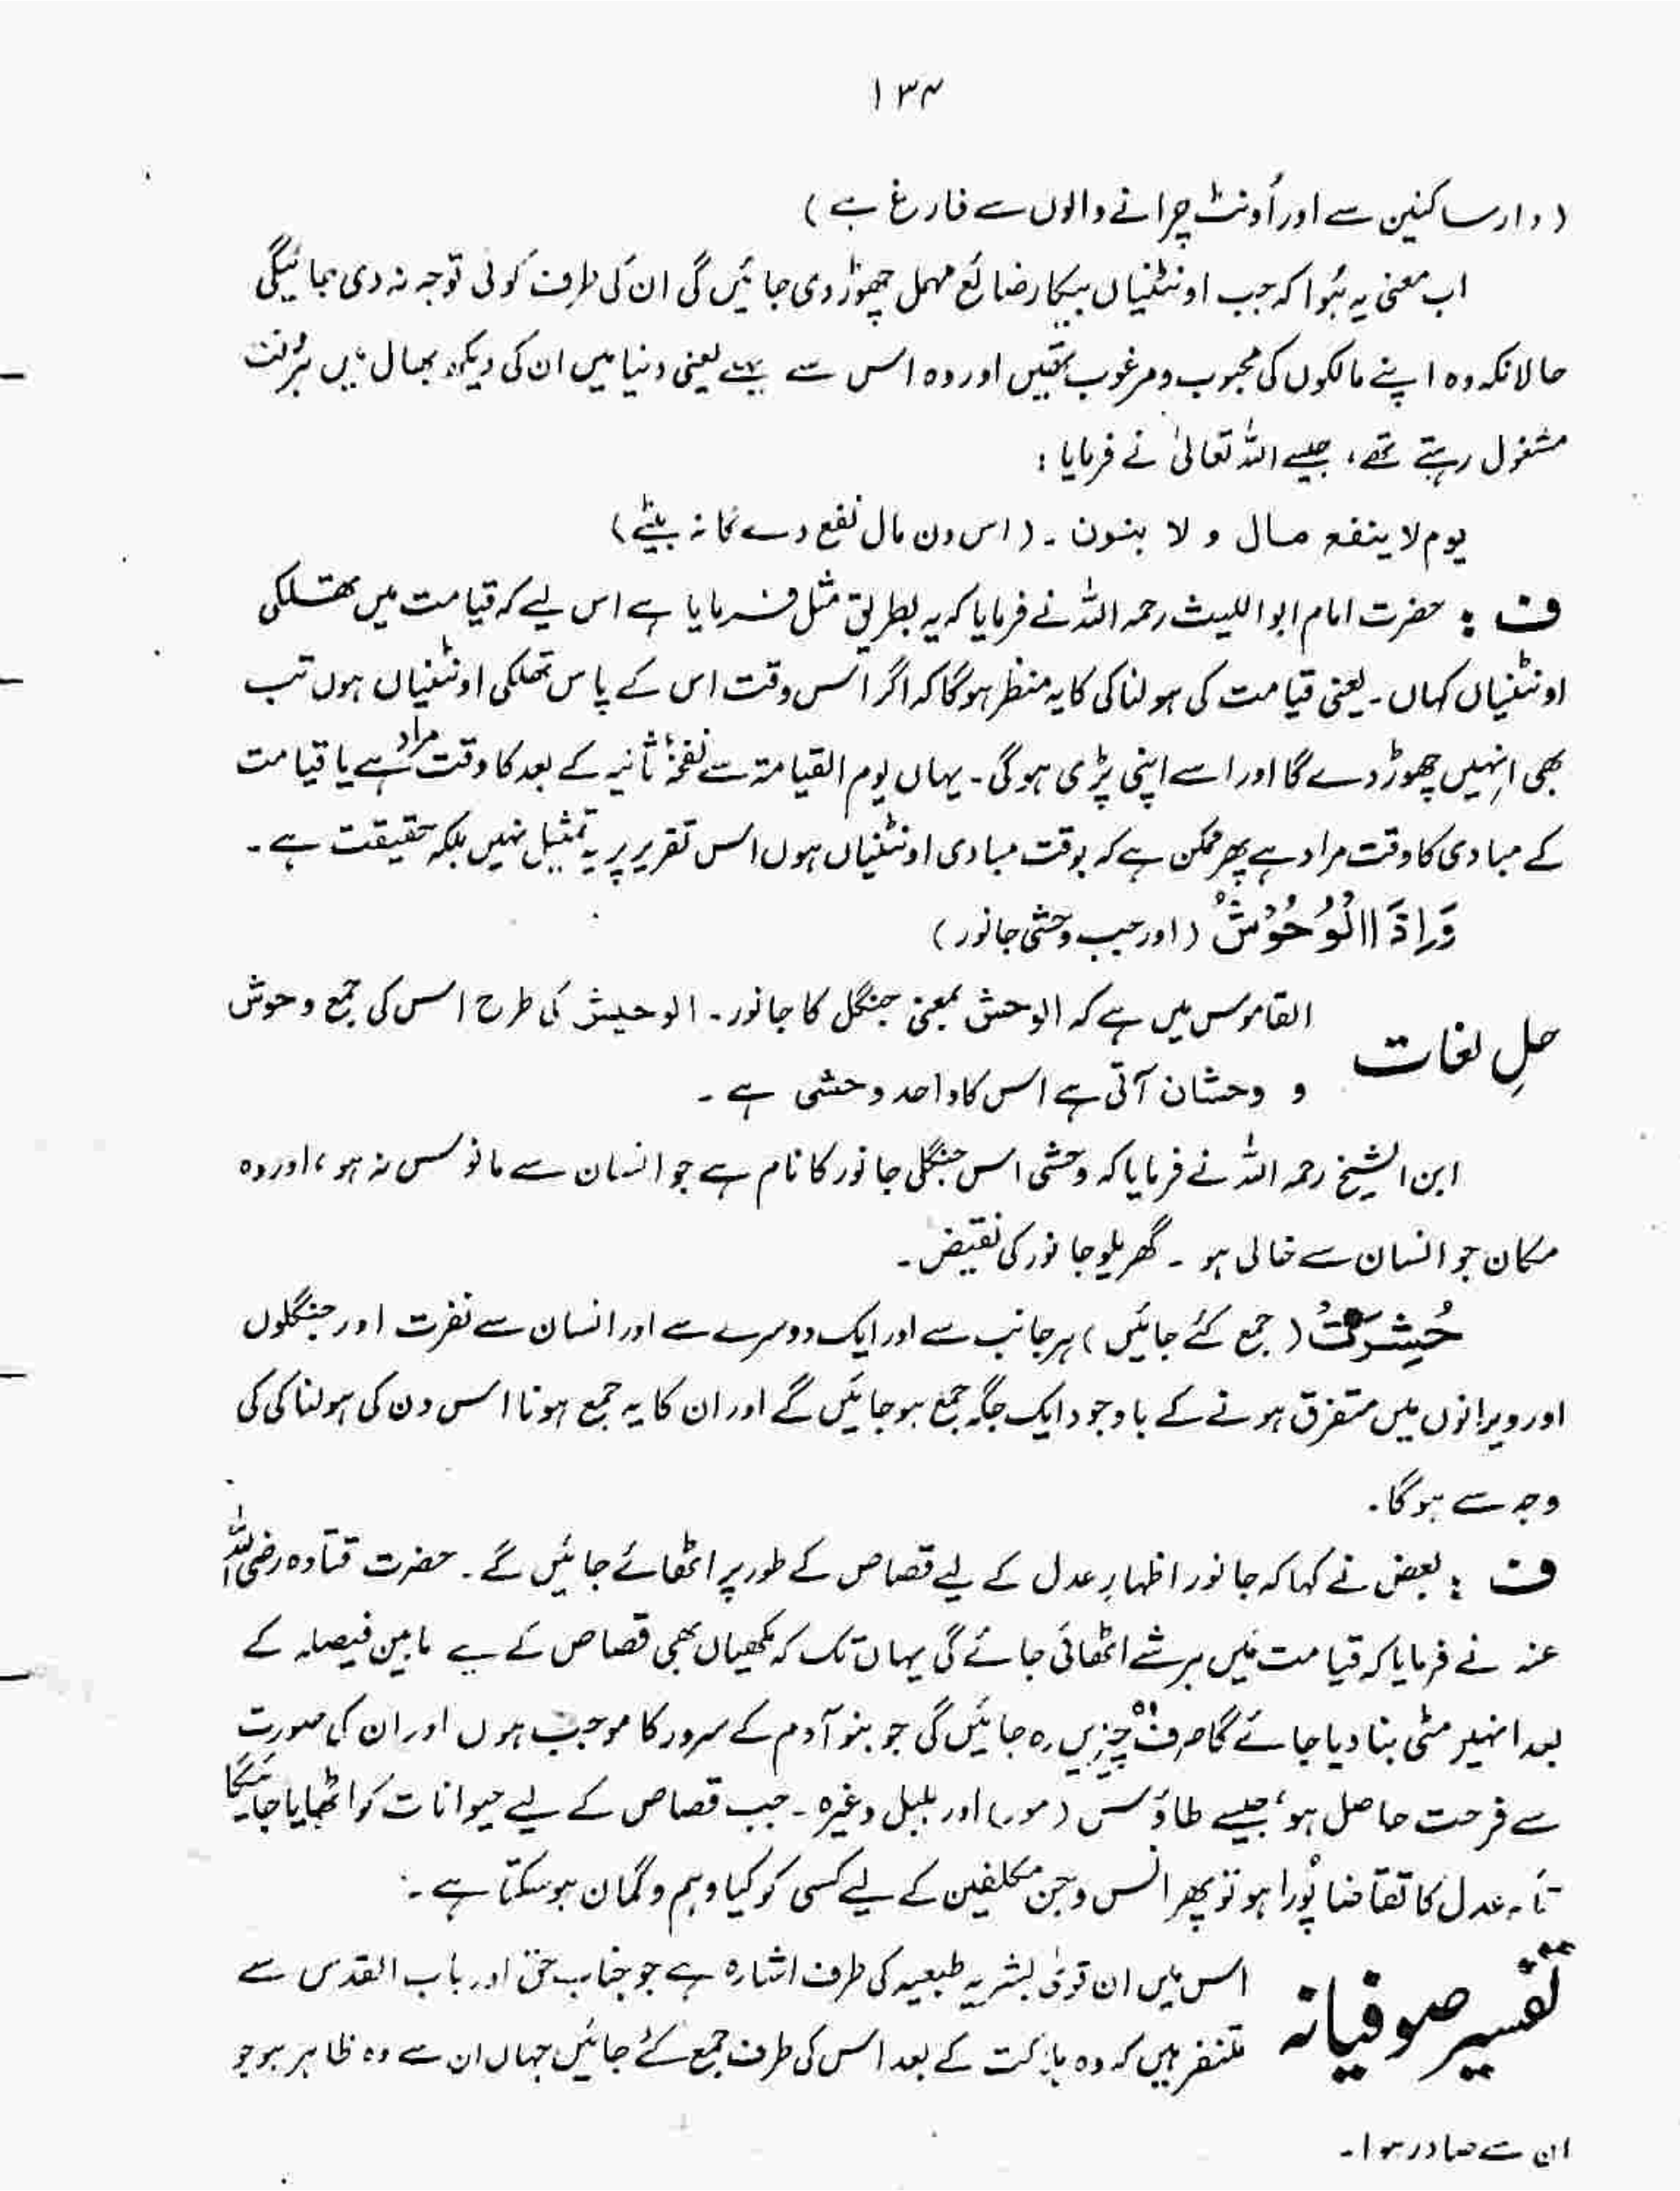 ۱۳۴
(دار ساکنین سے اور اُونٹ چرانے والوں سے فارغ ہے)
اب معنیٰ یہ ہُوا کہ جب اونٹنیاں بیکار ضائع مہمل چھوڑ دی جائیں گی ان کی طرف کوئی توجہ نہ دی جائیگی
حالانکہ وہ اپنے مالکوں کی محبوب و مرغوب تھیں اور وہ اس سے پہلے یعنی دنیا میں ان کی دیکھ بھال میں ہر وقت
مشغول رہتے تھے، جیسے اللہ تعالیٰ نے فرمایا :
یوم لا ینفع مال و لا بنون ۔ (اس دن مال نفع دے گا نہ بیٹے)
ف : حضرت امام ابو اللیث رحمہ اللہ نے فرمایا کہ یہ بطریق مثل فرمایا ہے اس لیے کہ قیامت میں تھلکی
اونٹنیاں کہاں ۔ یعنی قیامت کی ہولناکی کا یہ منظر ہو گا کہ اگر اس وقت اس کے پاس تھلکی اونٹنیاں ہوں تب
بھی انہیں چھوڑ دے گا اور اسے اپنی پڑی ہو گی ۔ یہاں یوم القیامۃ سے نفخۂ ثانیہ کے بعد کا وقت مراد ہے یا قیامت
کے مبادی کا وقت مراد ہے پھر ممکن ہے کہ بوقت مبادی اونٹنیاں ہوں اس تقریر پر یہ تمثیل نہیں بلکہ حقیقت ہے ۔
وَاِذَا الْوُحُوْشُ (اور جب وحشی جانور)
حلِ لغات القاموس میں ہے کہ الوحش بمعنی جنگل کا جانور ۔ الوحیش کی طرح اس کی جمع وحوش
و وحشان آتی ہے اس کا واحد وحشی ہے ۔
ابن الشیخ رحمہ اللہ نے فرمایا کہ وحشی اس جنگلی جانور کا نام ہے جو انسان سے مانوس نہ ہو، اور وہ
مکان جو انسان سے خالی ہو ۔ گھریلو جانور کی نقیض ۔
حُشِرَتْ (جمع کئے جائیں) ہر جانب سے اور ایک دوسرے سے اور انسان سے نفرت اور جنگلوں
اور ویرانوں میں متفرق ہونے کے باوجود ایک جگہ جمع ہو جائیں گے اور ان کا یہ جمع ہونا اس دن کی ہولناکی کی
وجہ سے ہو گا ۔
ف : بعض نے کہا کہ جانور اظہارِ عدل کے لیے قصاص کے طور پر اٹھائے جائیں گے ۔ حضرت قتادہ رضی اللہ
عنہ نے فرمایا کہ قیامت میں ہر شے اٹھائی جائے گی یہاں تک کہ مکھیاں بھی قصاص کے لیے مابین فیصلہ کے
بعد انہیں مٹی بنا دیا جائے گا صرف وہ چیزیں رہ جائیں گی جو بنو آدم کے سرور کا موجب ہوں اور ان کی صورت
سے فرحت حاصل ہو، جیسے طاؤس (مور) اور بلبل وغیرہ ۔ جب قصاص کے لیے حیوانات کو اٹھایا جائیگا
تاکہ عدل کا تقاضا پُورا ہو تو پھر انس و جن مکلفین کے لیے کسی کو کیا وہم و گمان ہو سکتا ہے ۔
تفسیر صوفیانہ اس میں ان قویٰ بشریہ طبعیہ کی طرف اشارہ ہے جو جناب حق اور باب القدس سے
متنفر ہیں کہ وہ ہلاکت کے بعد اس کی طرف جمع کئے جائیں جہاں ان سے وہ ظاہر ہو جو
ان سے صادر ہوا ۔